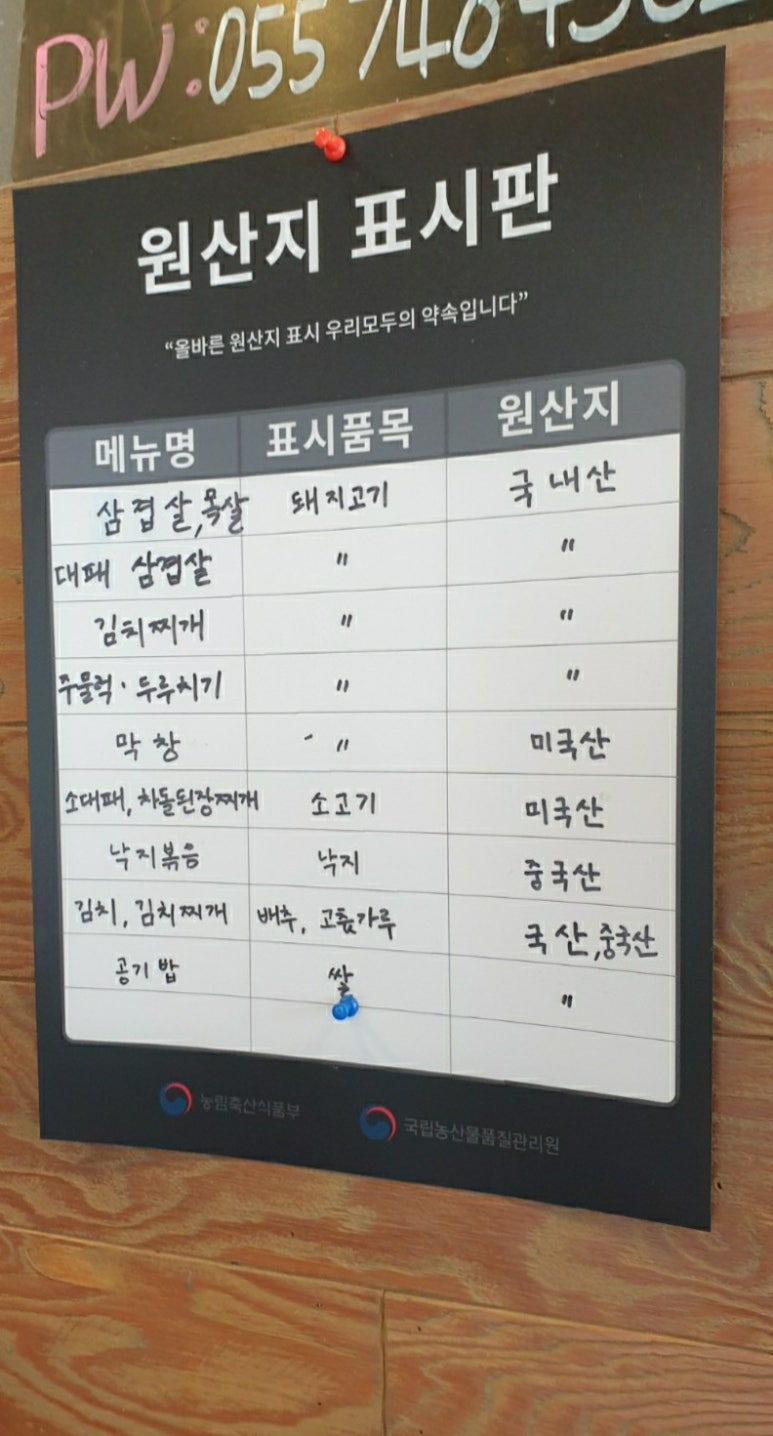 PW:055
원산지 표시판
“올바른 원산지 표시 우리모두의 약속입니다”
메뉴명 표시품목 원산지
삼겹살,목살 돼지고기 국내산
대패 삼겹살 〃 〃
김치찌개 〃 〃
주물럭·두루치기 〃 〃
막창 〃 미국산
소대패, 차돌된장찌개 소고기 미국산
낙지볶음 낙지 중국산
김치, 김치찌개 배추, 고춧가루 국산,중국산
공기밥 쌀 〃
농림축산식품부 국립농산물품질관리원